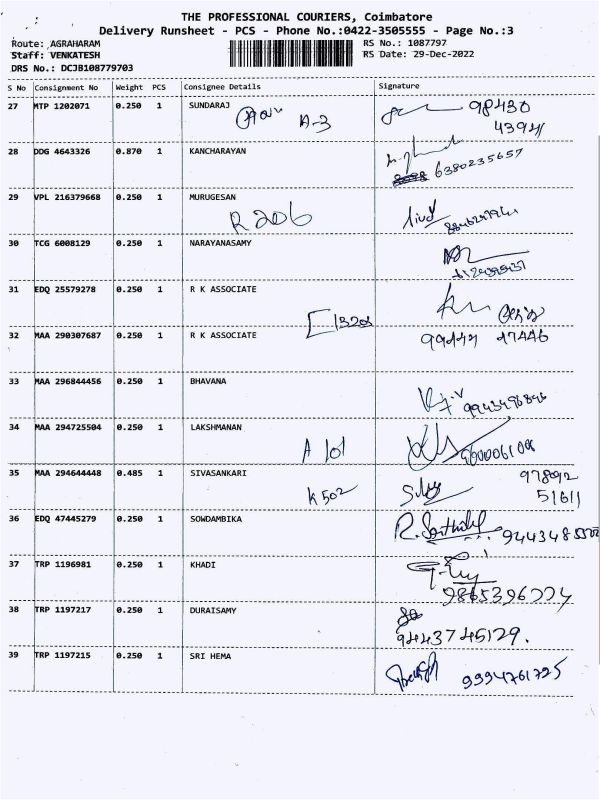 THE PROFESSIONAL COURIERS, Coimbatore
Delivery Runsheet - PCS - Phone No.:0422-3505555 - Page No.:3
Route: AGRAHARAM
Staff: VENKATESH
DRS No.: DCJB108779703
RS No.: 1087797
RS Date: 29-Dec-2022
S No Consignment No Weight PCS Consignee Details Signature
27 MTP 1202071 0.250 1 SUNDARAJ
A-3
98430
43941
28 DDG 4643326 0.870 1 KANCHARAYAN
6380235657
29 VPL 216379668 0.250 1 MURUGESAN
R 206
30 TCG 6008129 0.250 1 NARAYANASAMY
31 EDQ 25579278 0.250 1 R K ASSOCIATE
32 MAA 290307687 0.250 1 R K ASSOCIATE
33 MAA 296844456 0.250 1 BHAVANA
34 MAA 294725504 0.250 1 LAKSHMANAN
A 101
35 MAA 294644448 0.485 1 SIVASANKARI
K 502
51611
36 EDQ 47445279 0.250 1 SOWDAMBIKA
37 TRP 1196981 0.250 1 KHADI
38 TRP 1197217 0.250 1 DURAISAMY
9443745129.
39 TRP 1197215 0.250 1 SRI HEMA
9994761725